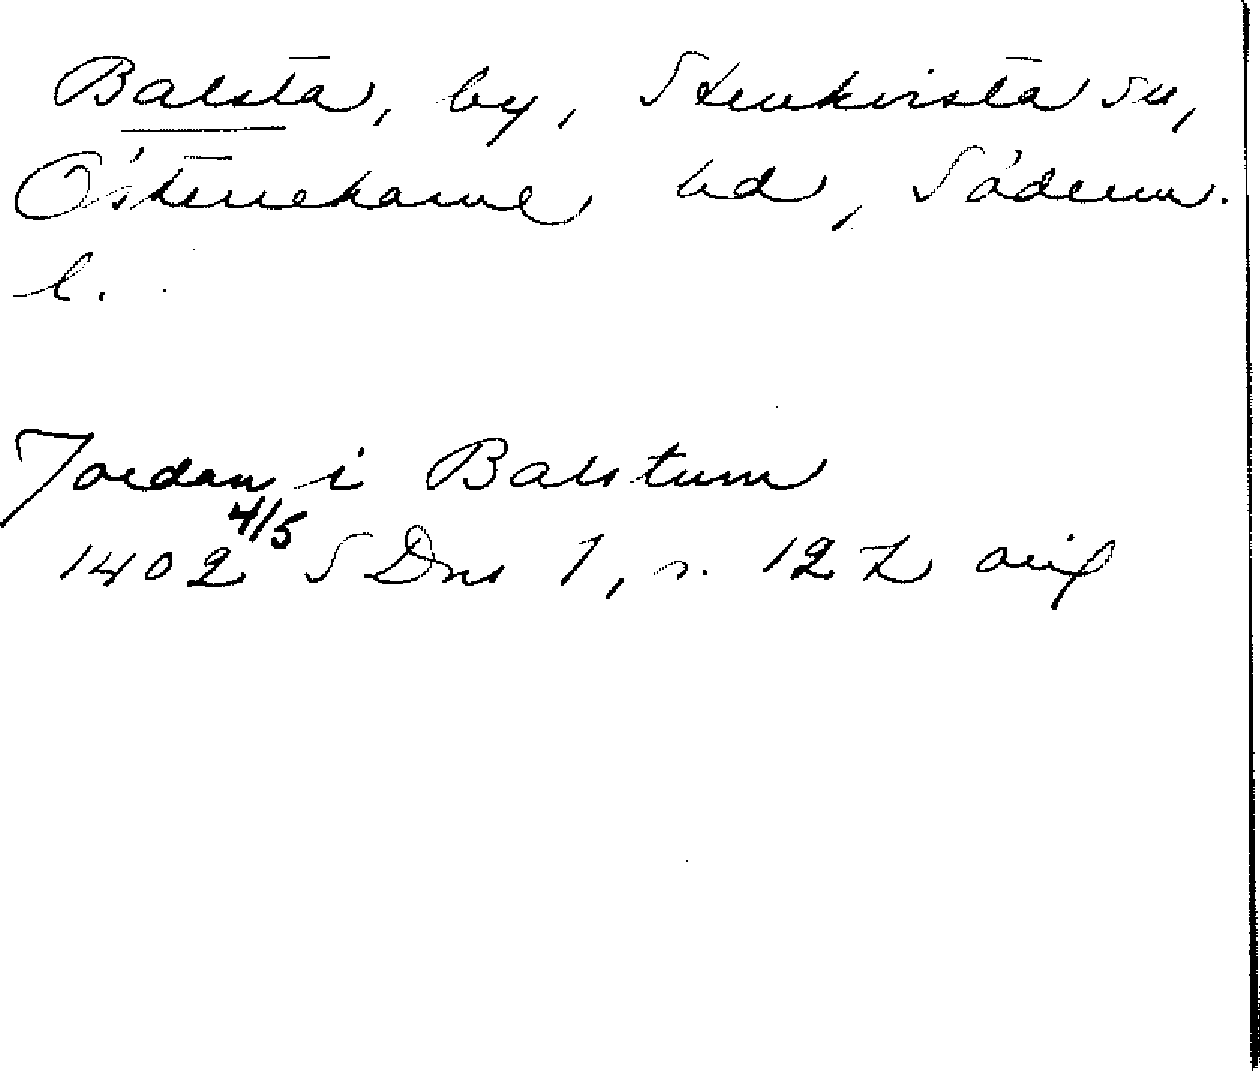 Balsta, by, Stenkvista sn,
Österrekarne hd, Söderm.
l.
Jordan i Balstum
1402 4/5 SDns 1, s. 127 orig